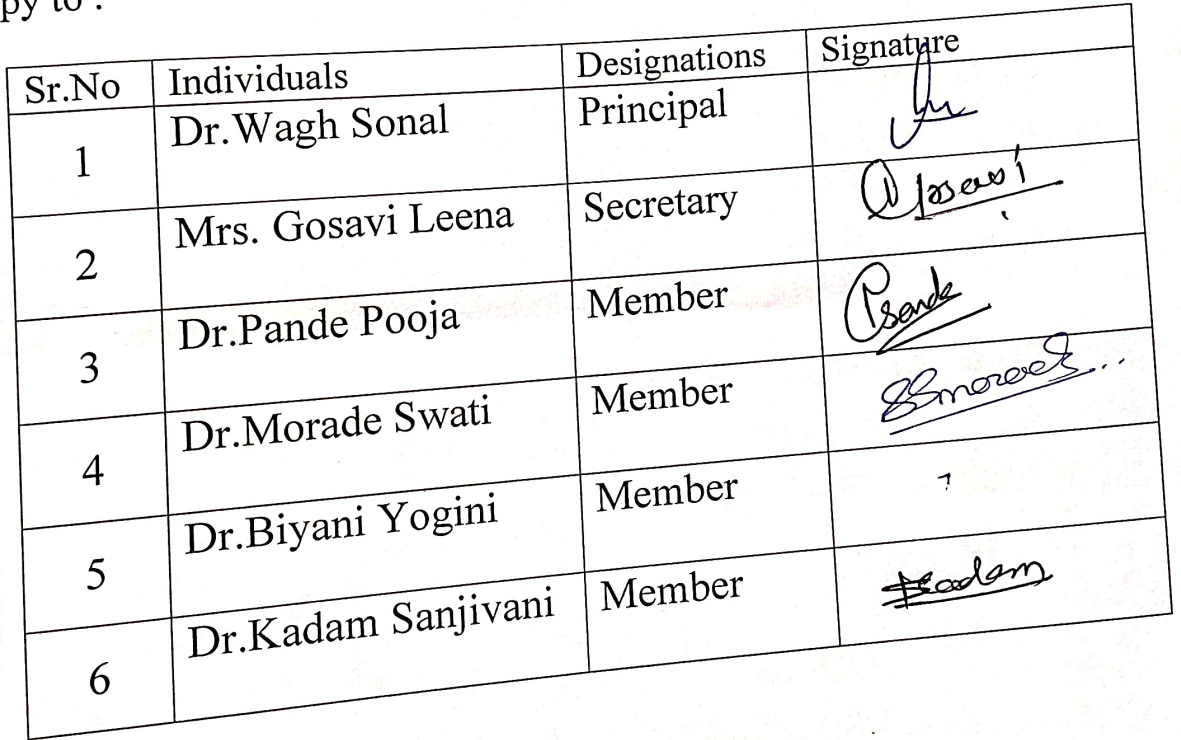 py to :
Sr.No Individuals Designations Signature
1 Dr.Wagh Sonal Principal
2 Mrs. Gosavi Leena Secretary Gosavi
3 Dr.Pande Pooja Member Pande
4 Dr.Morade Swati Member SSmorade
5 Dr.Biyani Yogini Member
6 Dr.Kadam Sanjivani Member Kadam